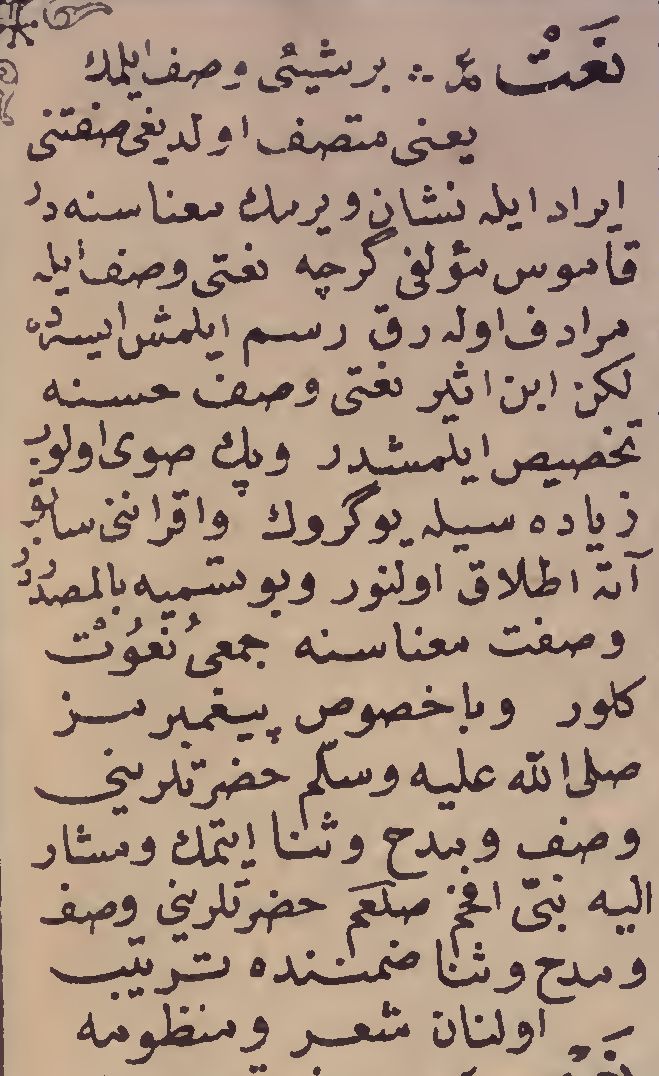 نَعَتْ مد ∴ بر شیئی وصف ایلمك
یعنی متصف اولدیغی صفتنی
ایراد ایله نشان ویرمك معناسنه در
قاموس مؤلفی گرچه نعتی وصف ایله
مرادف اوله رق رسم ایلمش ایسه ده
لكن ابن اثیر نعتی وصف حسنه
تخصیص ایلمشدر وپك صوی اولوب
زیاده سیله یوگروك واقراننی سابق
آته اطلاق اولنور وبو تسمیه بالمصدردر
وصفت معناسنه جمعی نُعُوتْ
كلور وباخصوص پیغمبرمز
صلی الله علیه وسلّم حضرتلرینی
وصف ومدح وثنا ایتمك ومشار
الیه نبیّ افخم صلعم حضرتلرینی وصف
ومدح وثنا ضمننده ترتیب
اولنان شعر ومنظومه